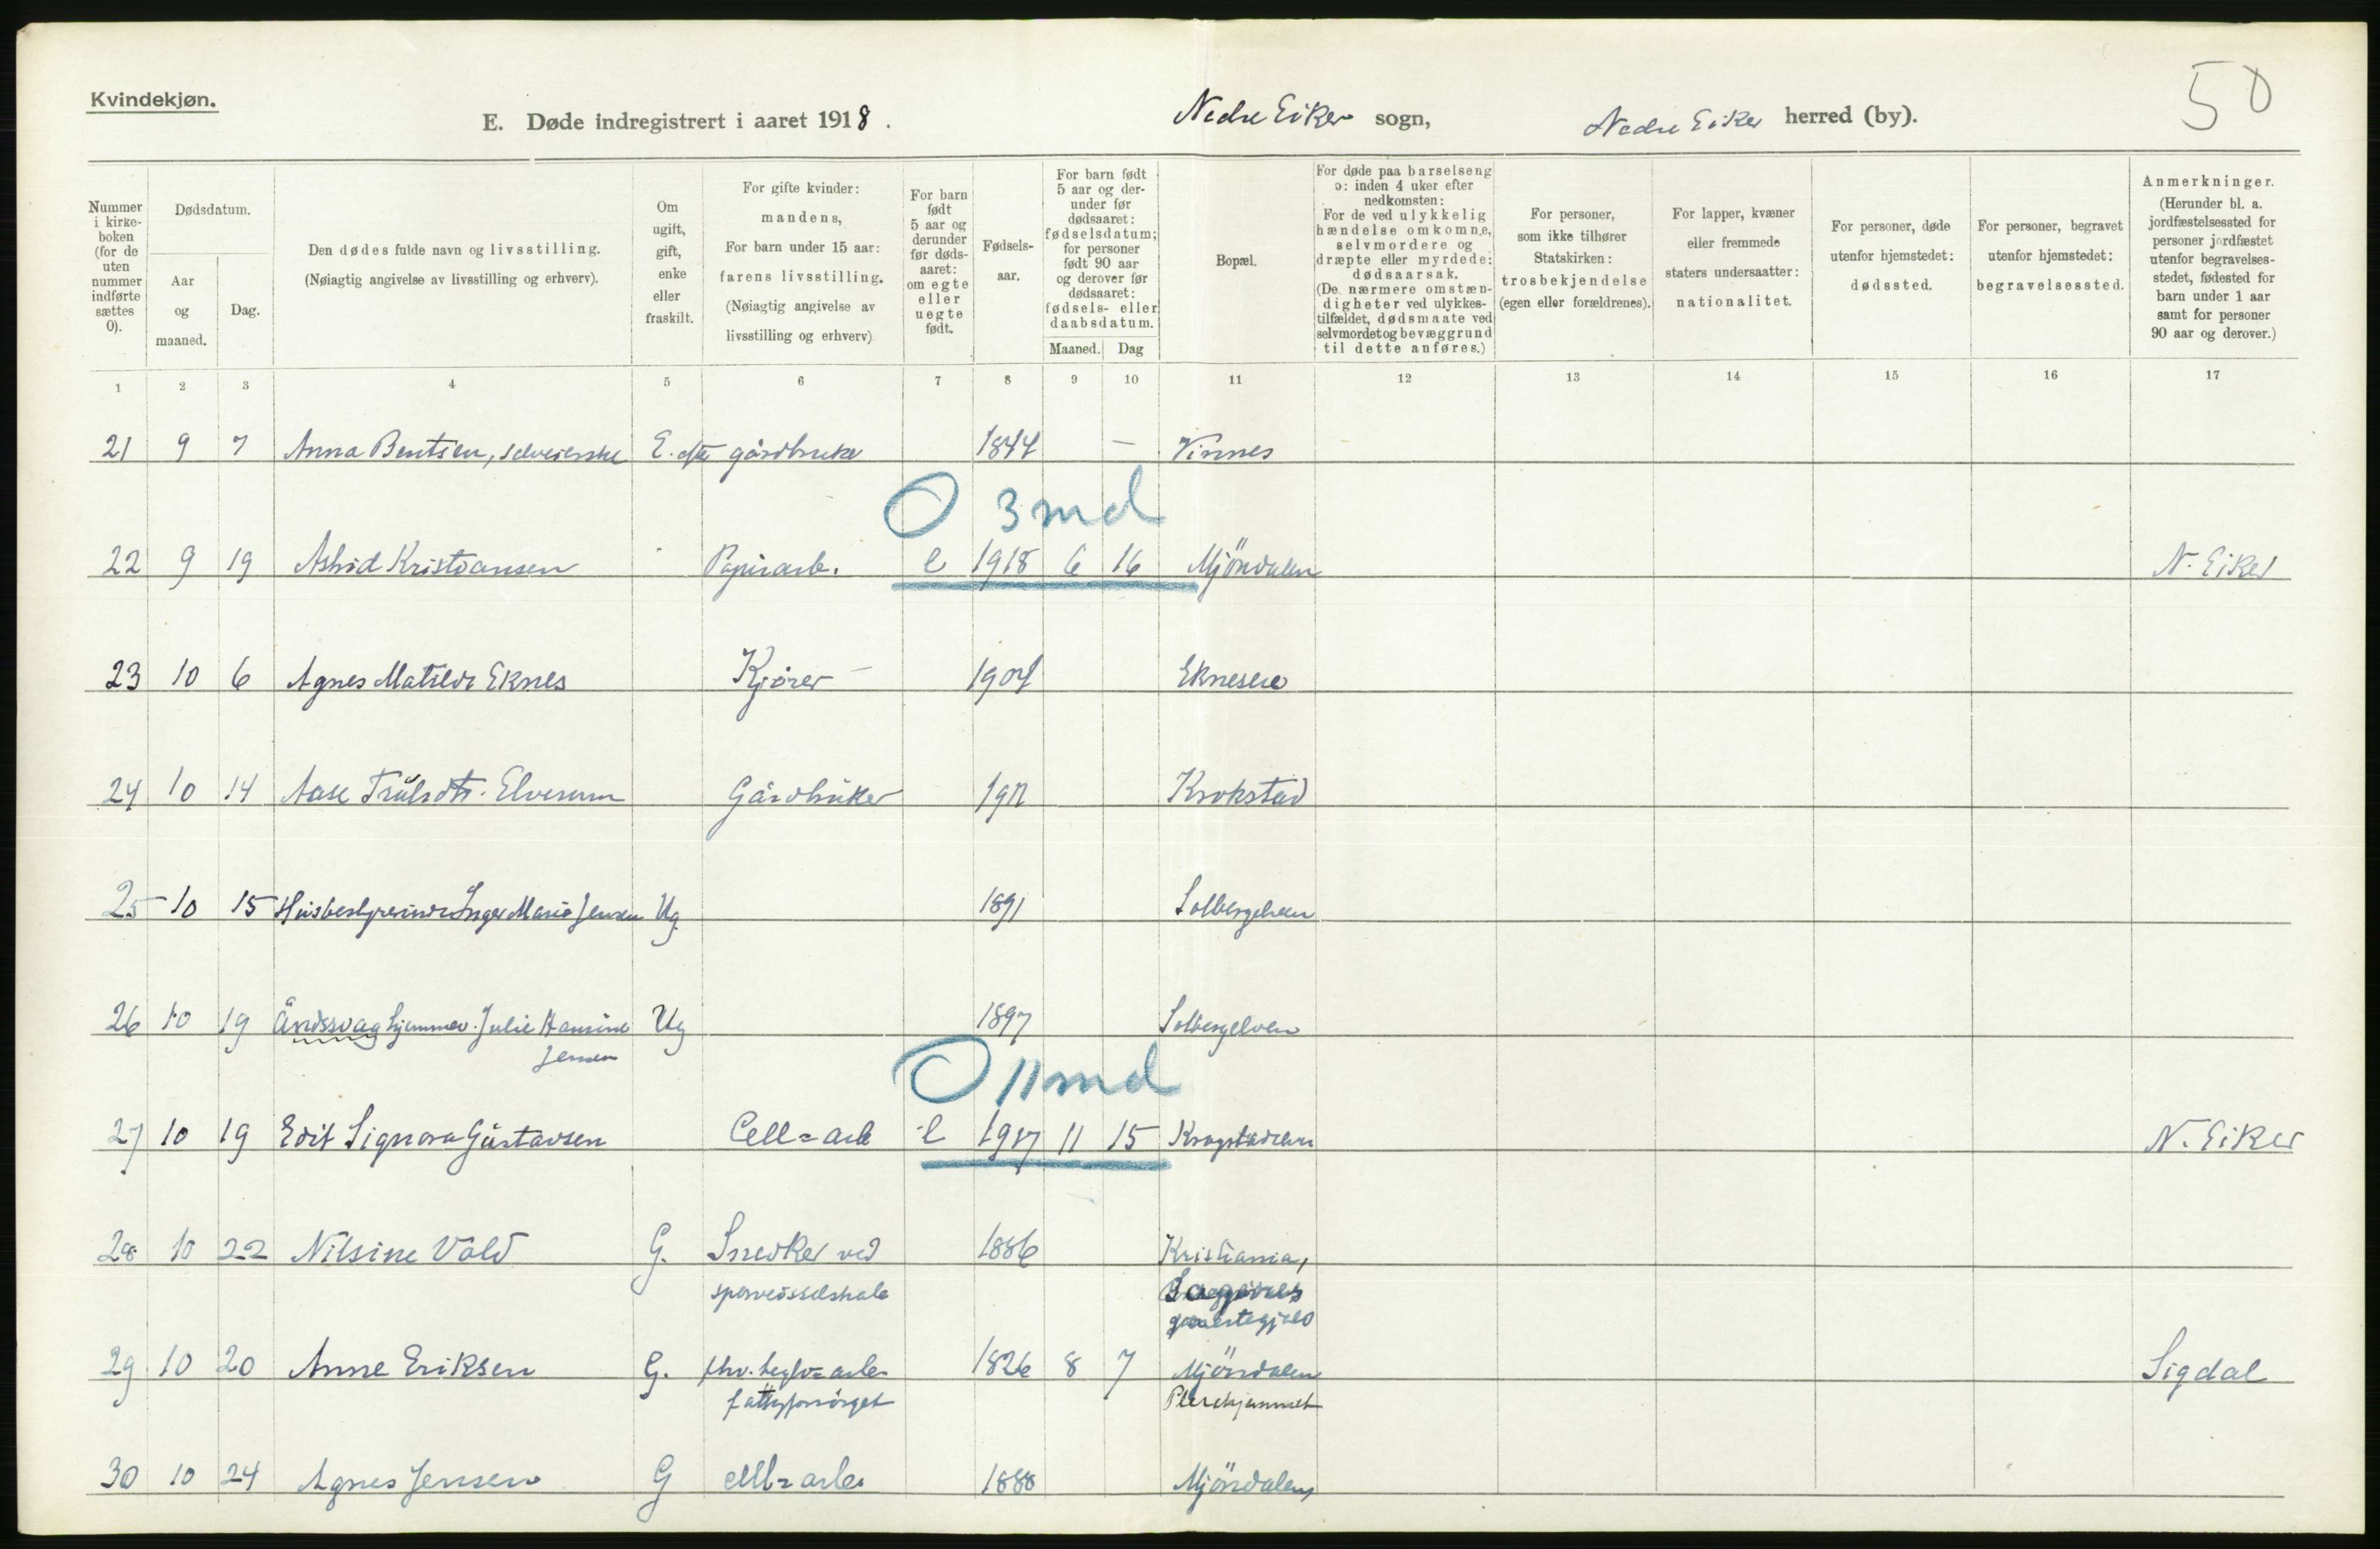 Kvindekjøn.
50
E. Døde indregistrert i aaret 1918. Nedre Eiker sogn, Nedre Eiker herred (by).
Nummer i kirke- boken (for de uten nummer indførte sættes 0).
Dødsdatum.
Aar og maaned.
Dag.
Den dødes fulde navn og livsstilling.
(Nøiagtig angivelse av livsstilling og erhverv).
Om ugift, gift, enke eller fraskilt.
For gifte kvinder: mandens,
For barn under 15 aar: farens livsstilling.
(Nøiagtig angivelse av livsstilling og erhverv)
For barn født 5 aar og derunder før døds- aaret: om egte eller uegte født.
Fødsels- aar.
For barn født 5 aar og der- under før dødsaaret: fødselsdatum; for personer født 90 aar og derover før dødsaaret: fødsels- eller daabsdatum.
Maaned. Dag
Bopæl.
For døde paa barselseng ɔ: inden 4 uker efter nedkomsten:
For de ved ulykkelig hændelse omkomne, selvmordere og dræpte eller myrdede: dødsaarsak.
(De nærmere omstæn- digheter ved ulykkes- tilfældet, dødsmaate ved selvmord et og bevæggrund til dette anføres.)
For personer, som ikke tilhører Statskirken: trosbekjendelse (egen eller forældrenes).
For lapper, kvæner eller fremmede staters undersaatter: nationalitet.
For personer, døde utenfor hjemstedet: dødssted.
For personer, begravet utenfor hjemstedet: begravelsessted.
Anmerkninger. (Herunder bl. a. jordfæstelsessted for personer jordfæstet utenfor begravelses- stedet, fødested for barn under 1 aar samt for personer 90 aar og derover.)
1 2 3 4 5 6 7 8 9 10 11 12 13 14 15 16 17
21 9 7 Anna Bentsen, selveierske E. efter gårdbruker 1844 — Vinnes
O 3 md
22 9 19 Astrid Kristiansen Papirarb. e 1918 6 16 Mjöndalen N. Eiker
23 10 6 Agnes Matilde Eknes Kjörer 1904 Eknesere
24 10 14 Aase Trulsdtr. Elverum Gårdbruker 1912 Krokstad
25 10 15 Husbestyrerinde Inger Marie Jensen Ug. 1891 Solbergelven
26 10 19 Åndssvag hjemmev. Julie Hansine Ug 1897 Solbergelven
Jensen
O 11 md
27 10 19 Edit Signora Gustavsen Cell=arb e 1917 11 15 Krogstadelven N. Eiker
28 10 22 Nilsine Vold G. Snedker ved 1886 Kristiania,
sporveisselskab
29 10 20 Anne Eriksen G. fhv. teglv=arb. 1826 8 7 Mjöndalen Sigdal
fattigforsörget Pleiehjemmet
30 10 24 Agnes Jensen G cell=arb. 1888 Mjöndalen